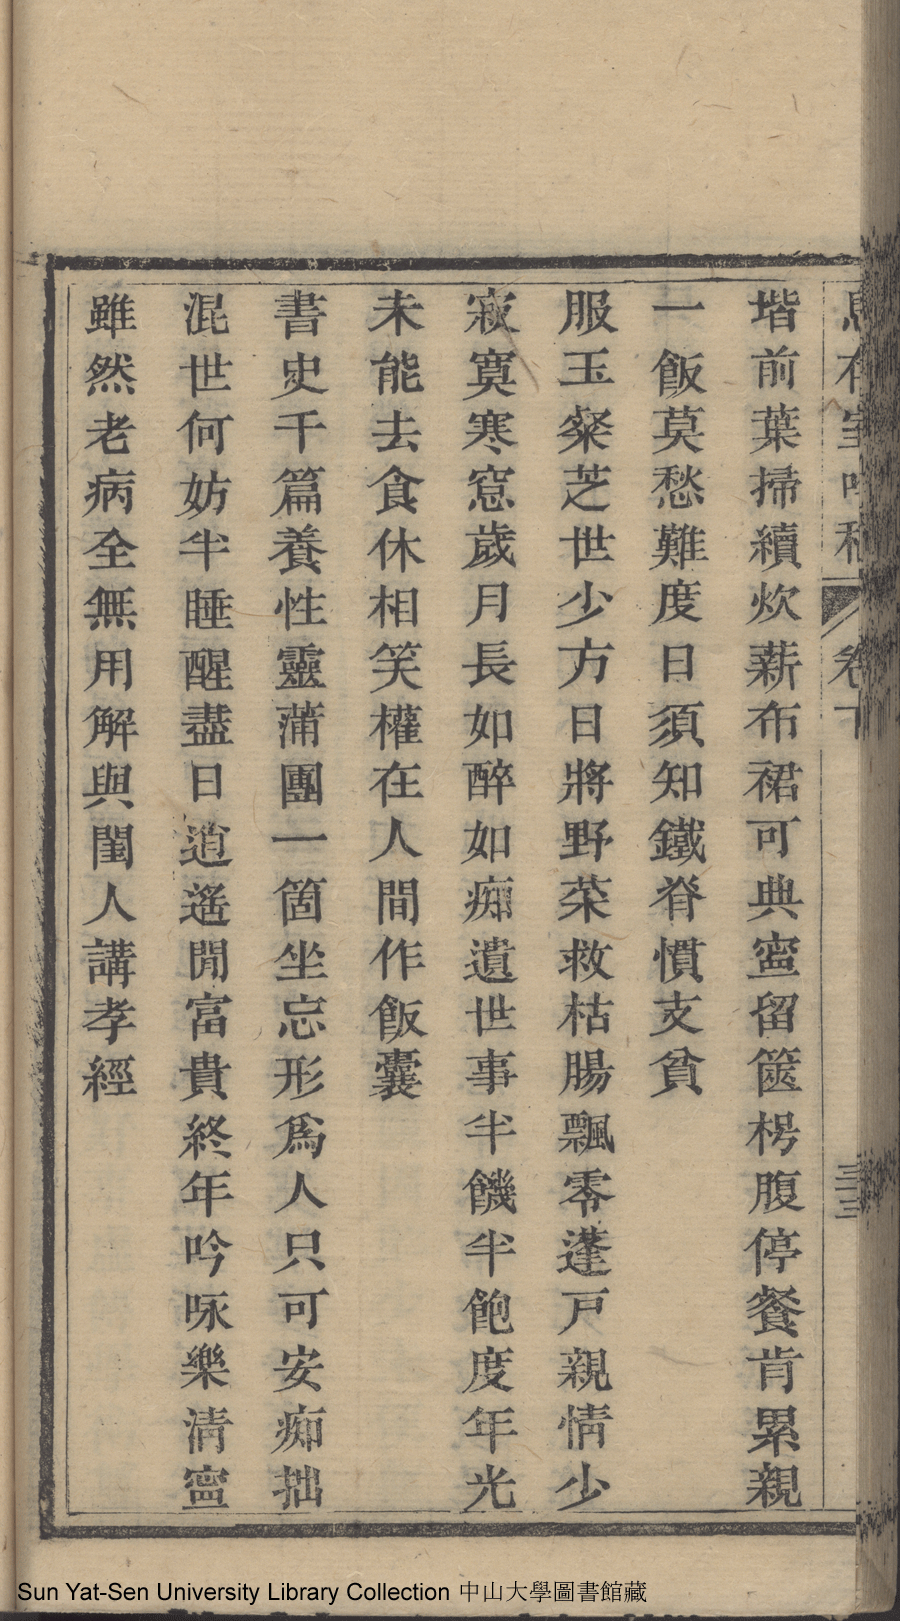 卷下
堦前葉掃續炊薪布裙可典寍留篋枵腹停餐肯累親
一飯莫愁難度日須知鐵脊慣支貧
服玉粲芝世少方日將野菜救枯腸飄零蓬戸親情少
寂寞寒窓歲月長如醉如痴遺世事半饑半飽度年光
未能去食休相笑權在人間作飯囊
書史千篇養性靈蒲團一箇坐忘形爲人只可安痴拙
混世何妨半睡醒盡日逍遙閒富貴終年吟咏樂清寍
雖然老病全無用解與閨人講孝經
Sun Yat-Sen University Library Collection 中山大學圖書館藏